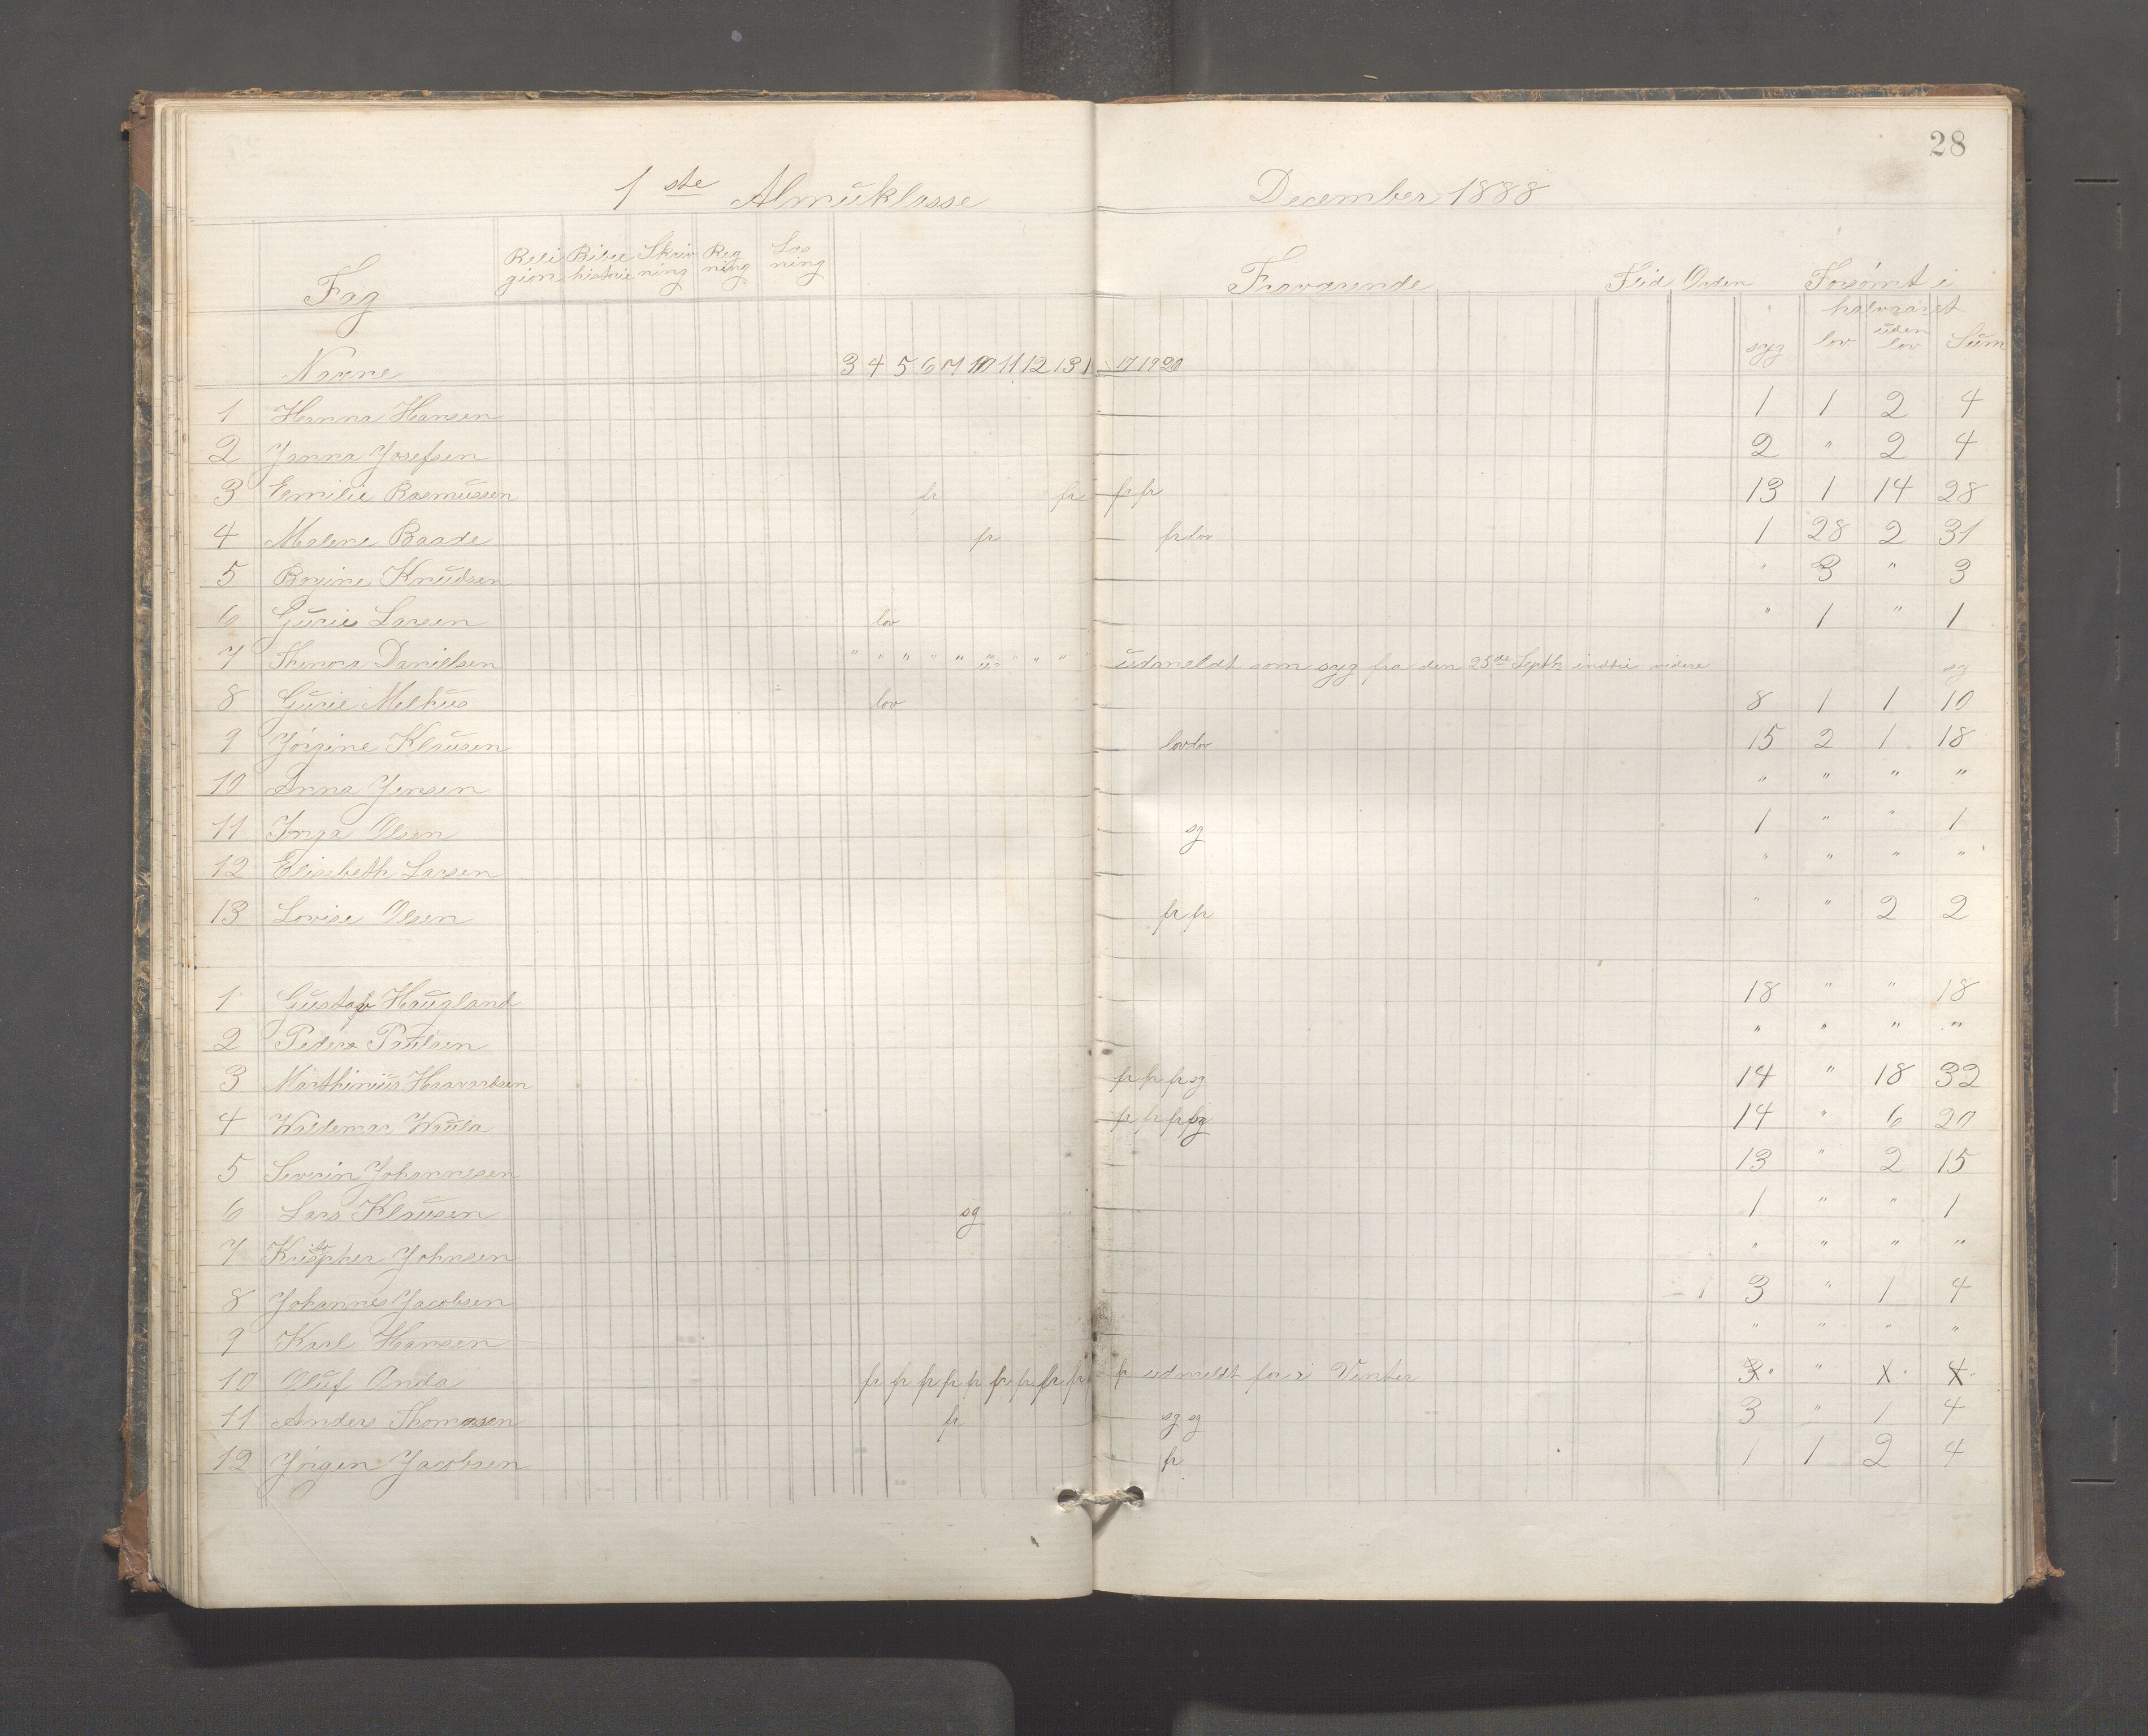 28
1 ste Almuklasse December 1888
Fag Reli gion Bibel historie Skriv ning Reg ning Læs ning Fraværende Flid Orden Forsømt i halvaaret
Navne 3 4 5 6 7 10 11 12 13 1 17 19 20 syg lov uden lov Sum
1 Hanna Hansen 1 1 2 4
2 Janna Josefsen 2 " 2 4
3 Emilie Rasmussen fr fr fr fr 13 1 14 28
4 Malene Baade fr fr lov 1 28 2 31
5 Knudsen " 3 " 3
6 Gurie Larsen lov " 1 " 1
7 Thenora Danielsen " " " " " " " " " " udmeldt som syg fra den 25de Septb indtil videre sg
8 Gurie Melhus lov 8 1 1 10
9 Jørgine Klausen lov lov 15 2 1 18
10 Anna Jensen " " " "
11 Inga Olsen sg 1 " " 1
12 Elisebeth Larsen " " " "
13 Lovise Olsen fr fr " " 2 2
1 Gustav Haugland 18 " " 18
2 Peder Paulsen " " " "
3 Marthinius fr fr fr sg 14 " 18 32
4 Waldemar Waula fr fr fr sg 14 " 6 20
5 Severin Johannesen 13 " 2 15
6 Lars Klausen sg 1 " " 1
7 Kristopher Johnsen " " " "
8 Johannes Jacobsen 1 3 " 1 4
9 Karl Hansen " " " "
10 Oluf Anda fr fr fr fr fr fr fr fr fr fr udmeldt for i Vinter 3 " 1 4
11 Anders Thomasen fr sg sg 3 " 1 4
12 Jørgen Jacobsen fr 1 1 2 4